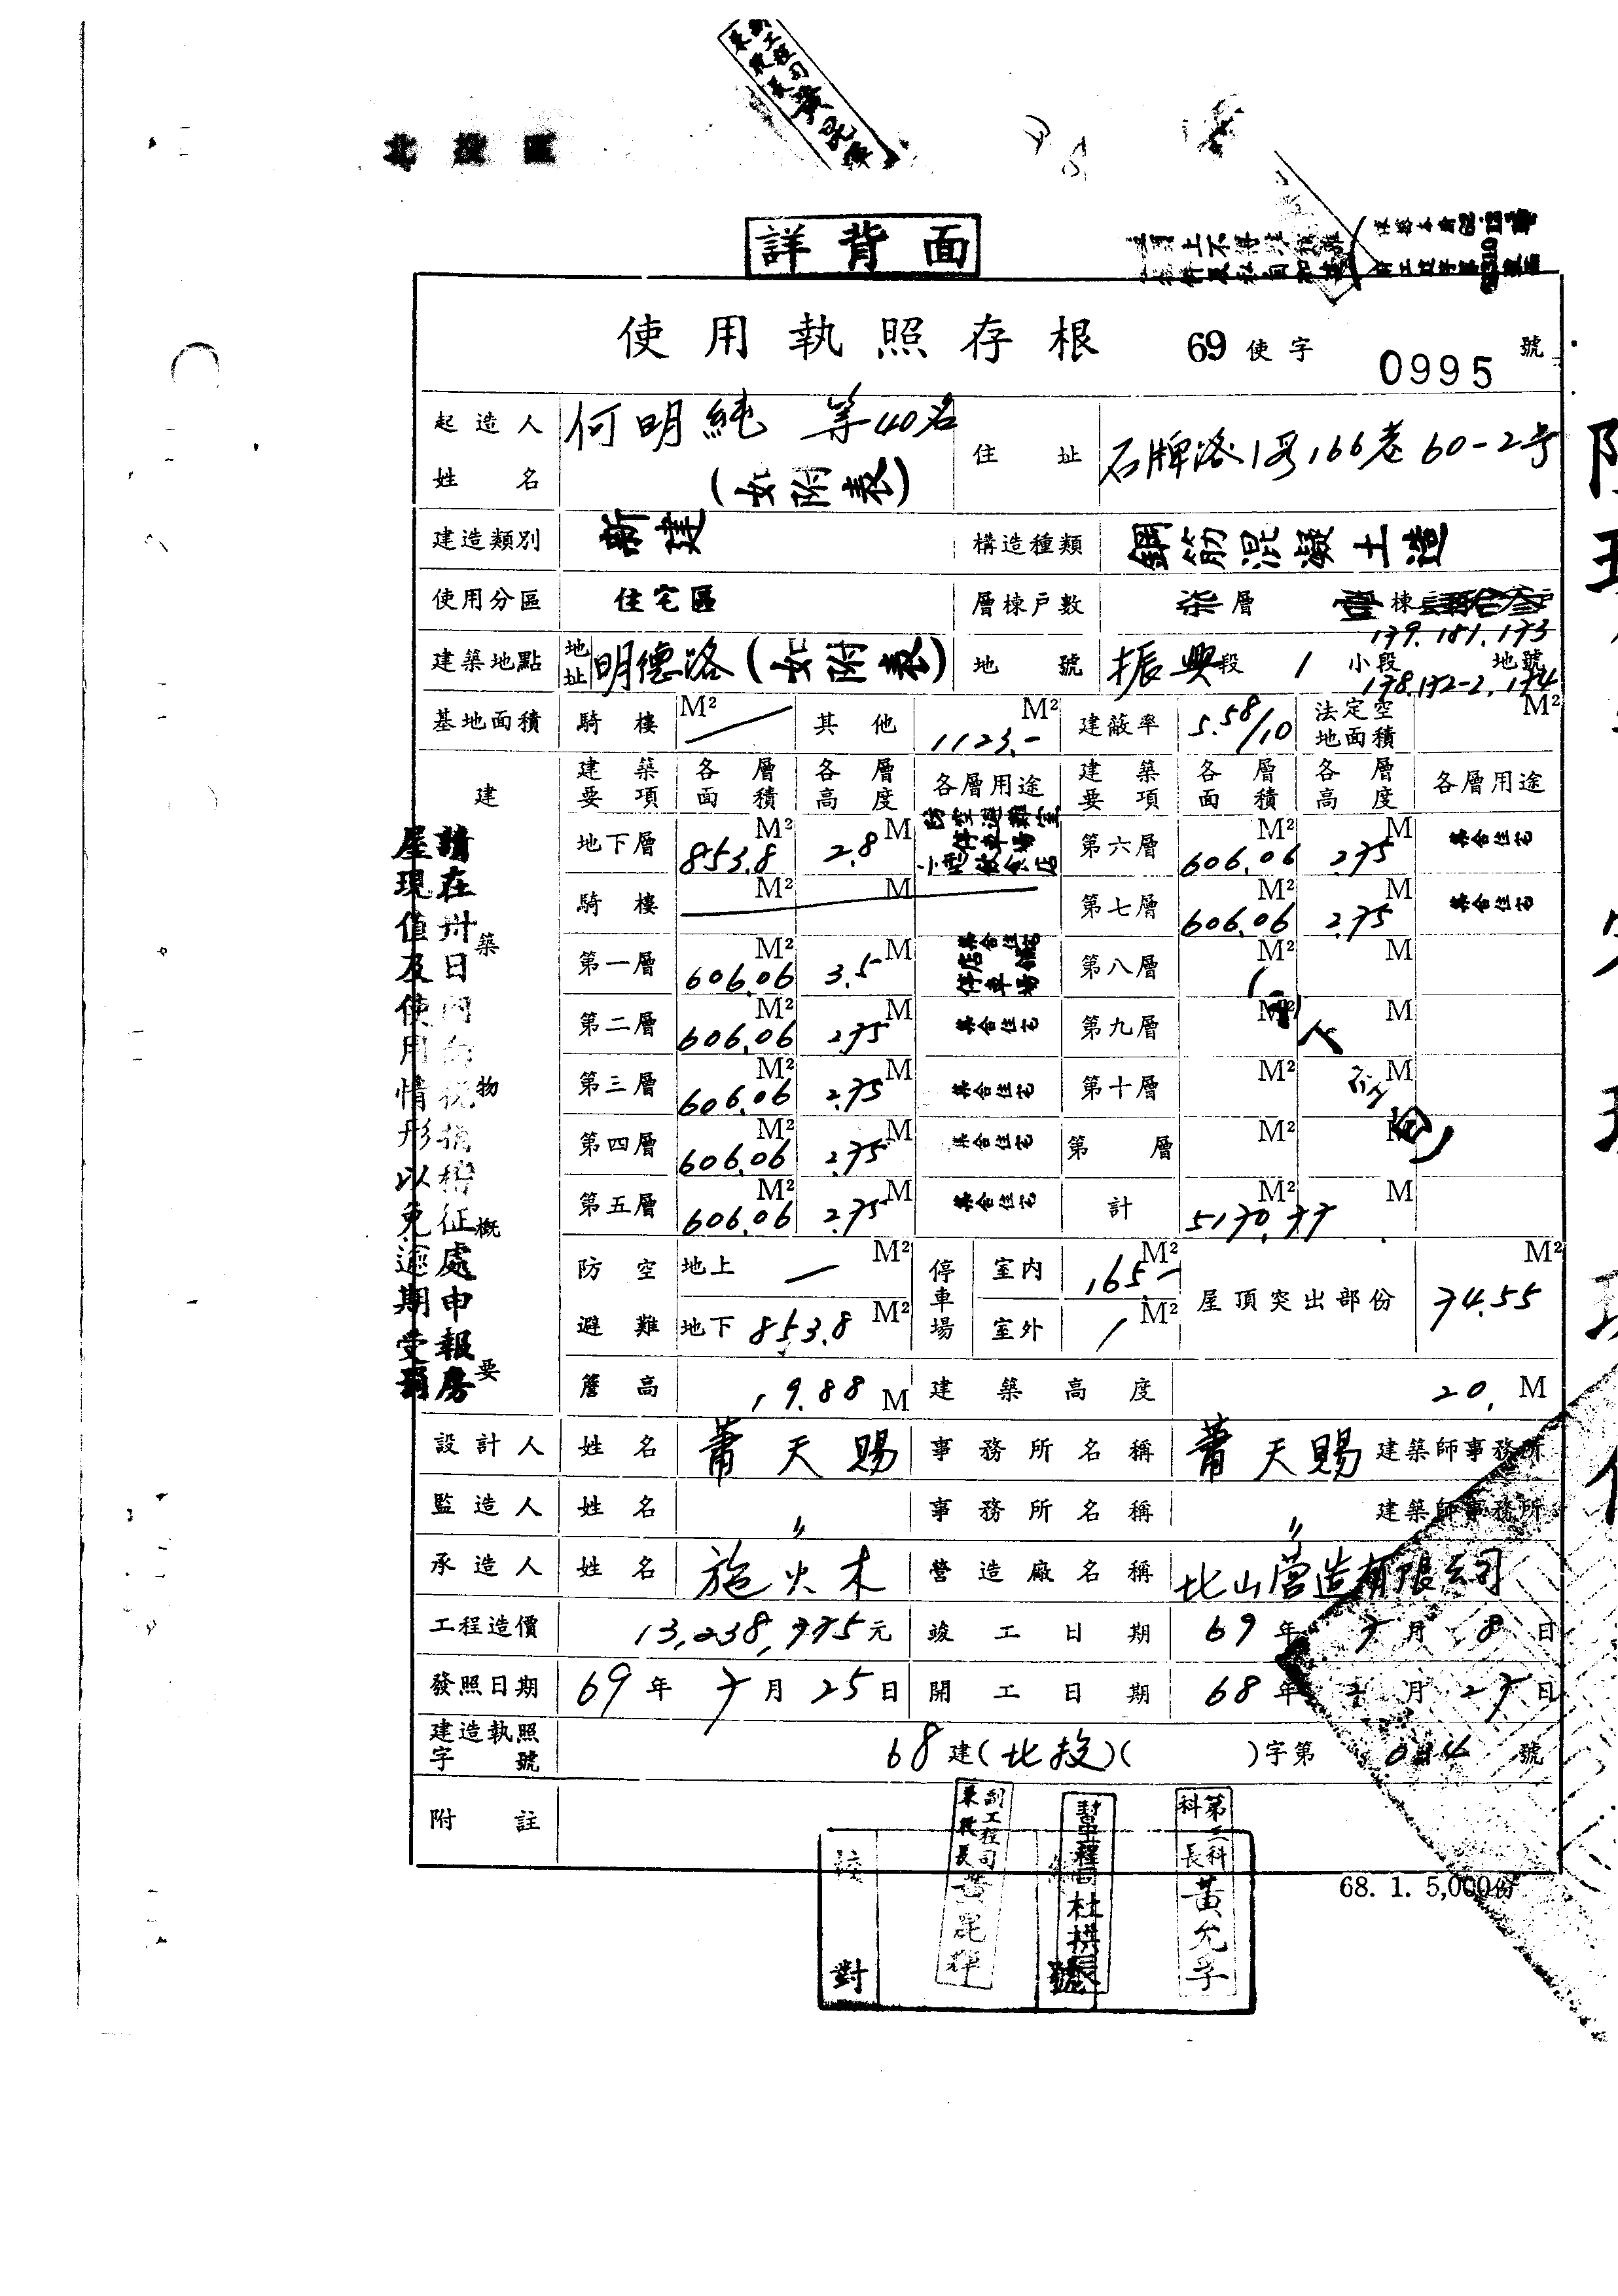 北投區
詳背面
使用執照存根 69 使字 0995 號
起造人姓名 何明純 等40名 (如附表) 住址 石牌路1段166巷60-2号
建造類別 新建 構造種類 鋼筋混凝土造
使用分區 住宅區 層棟戶數 柒層 壹棟
179.181.173
建築地點 地址 明德路(如附表) 地號 振興段 1 小段 地號
178.172-2.174
基地面積 騎樓 M² 其他 1123.- M² 建蔽率 5.58/10 法定空地面積 M²
建築物概要
建築要項 各層面積 各層高度 各層用途 建築要項 各層面積 各層高度 各層用途
地下層 853.8 M² 2.8 M 防空避難室 停車場 第六層 606.06 M² 2.75 M 集合住宅
騎樓 M² M 第七層 606.06 M² 2.75 M 集合住宅
第一層 606.06 M² 3.5 M 集合住宅 店舖 停車場 第八層 M² M
第二層 606.06 M² 2.75 M 集合住宅 第九層 M² M
第三層 606.06 M² 2.75 M 集合住宅 第十層 M² M
第四層 606.06 M² 2.75 M 集合住宅 第 層 M²
第五層 606.06 M² 2.75 M 集合住宅 計 5170.77 M² M
防空避難 地上 — M² 停車場 室內 165.- M² 屋頂突出部份 74.55 M²
地下 853.8 M² 室外 / M²
簷高 19.88 M 建築高度 20. M
設計人 姓名 蕭天賜 事務所名稱 蕭天賜 建築師事務所
監造人 姓名 〃 事務所名稱 〃 建築師事務所
承造人 姓名 施火木 營造廠名稱 北山营造有限公司
工程造價 13,238,775元 竣工日期 69年7月8日
發照日期 69年7月25日 開工日期 68年2月27日
建造執照字號 68建(北投)( )字第 044 號
附註
請在卅日內向稅捐稽征處申報房
屋現值及使用情形以免逾期受罰
副工程司
兼股長
黃昆輝
第三科
科長
黃允孚
校對
68. 1. 5,000份